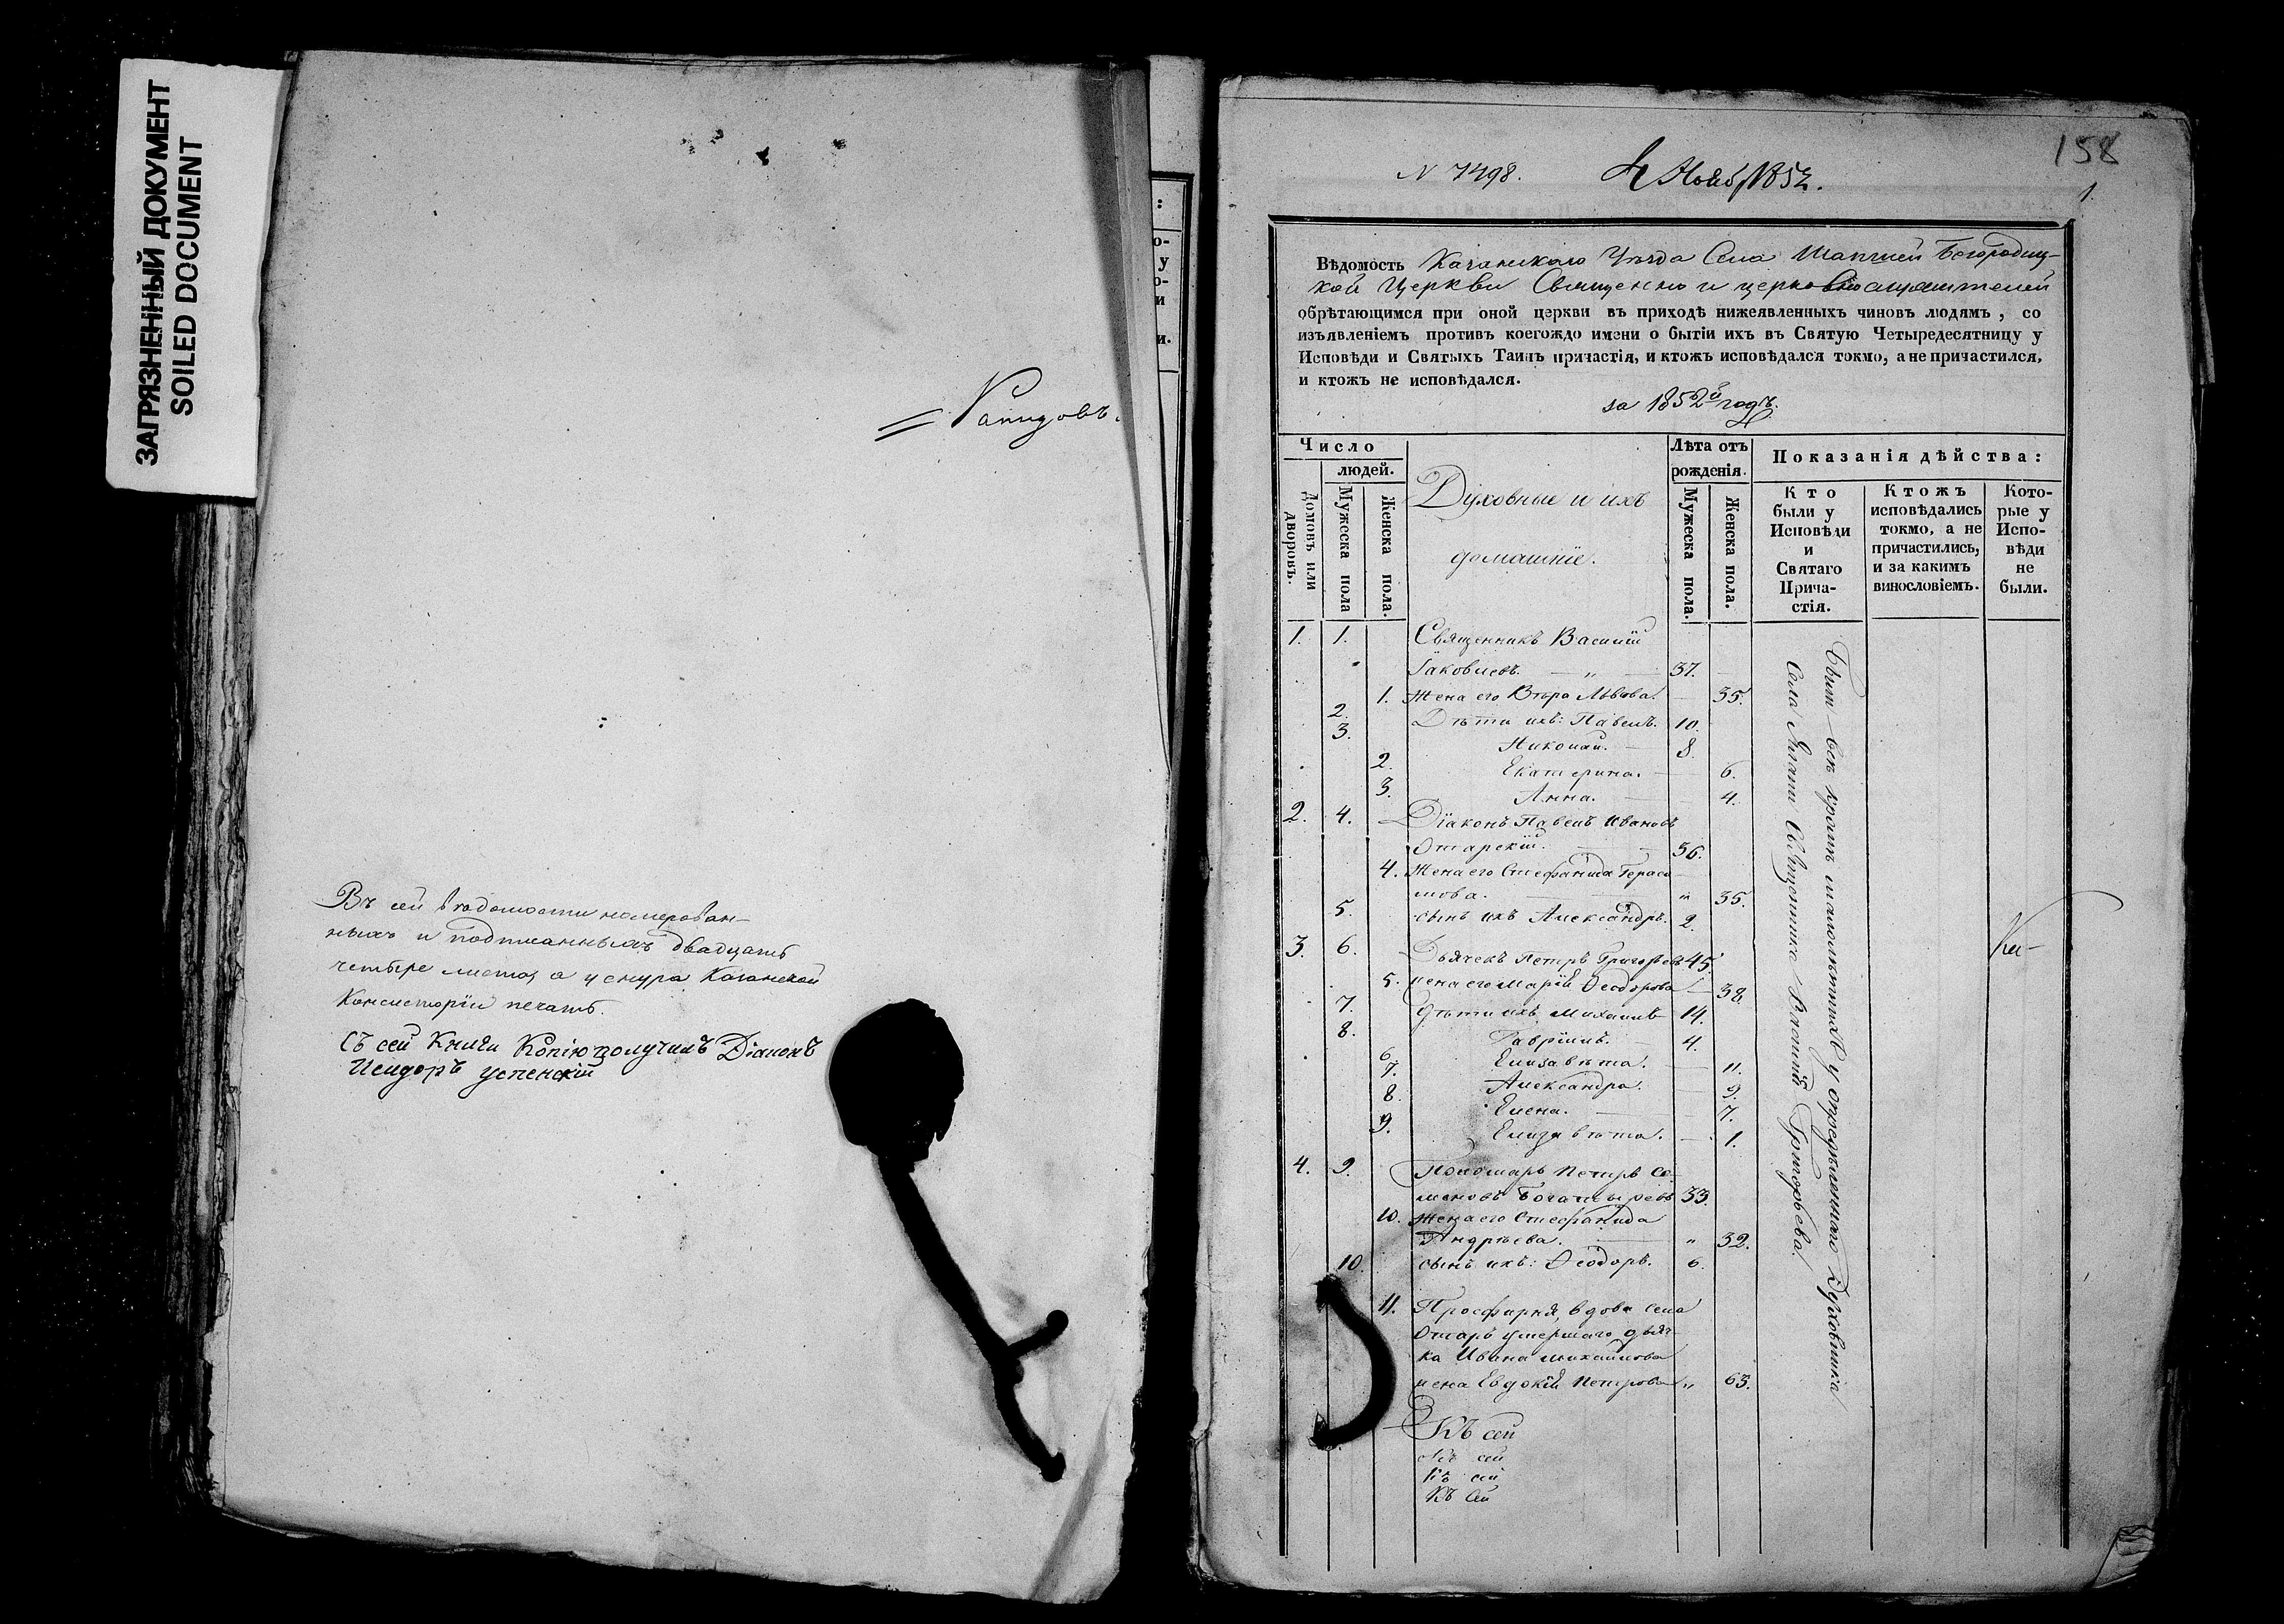 ЗАГРЯЗНЕННЫЙ ДОКУМЕНТ
SOILED DOCUMENT
Въ сей вѣдомости номерован-
ныхъ и подписанныхъ двадцать
четыре листа, а у снура Казанской
Консисторіи печать.
Съ сей Книги Копію получилъ Діаконъ
Исидоръ Успенскій
158
N 7498. 4 Нояб. 1852.
1.
Вѣдомость Казанскаго Уѣзда Села Шапшей Богородиц-
кой Церкви Священно и церковнослужителей
обрѣтающимся при оной церкви въ приходѣ нижеявленныхъ чиновъ людямъ, со
изъявленіемъ противъ коегождо имени о бытіи ихъ въ Святую Четыредесятницу у
Исповѣди и Святыхъ Таинъ причастія, и ктожъ исповѣдался токмо, а не причастился,
и ктожъ не исповѣдался.
за 1852й годъ.
Число
людей.
Домовъ или дворовъ.
Мужеска пола
Женска пола.
Духовные и ихъ
домашніе.
Лѣта отъ
рожденія.
Мужеска пола.
Женска пола.
Показанія дѣйства:
Кто
были у
Исповѣди
и
Святаго
Прича-
стія.
Ктожъ
исповѣдались
токмо, а не
причастились,
и за какимъ
винословіемъ.
Кото-
рые у
Испо-
вѣди
не
были.
1. 1. Священникъ Василій
Іаковлевъ. — „ — 37.
1. Жена его Вѣра Львова. — 35.
2. Дѣти ихъ: Павелъ. 10.
3. Николай. — 8.
2. Екатерина. — 6.
3. Анна. — 4.
2. 4. Діаконъ Павелъ Ивановъ
Отарскій. — 36.
4. Жена его Стефанида Гераси-
мова. — „ 35.
5. сынъ ихъ Александръ. 2.
3. 6. Дьячекъ Петръ Григорьевъ 45.
5. жена его Марія Ѳеодорова — 38.
7. дѣти ихъ Михаилъ 14.
8. Гавріилъ. — 4.
6. Елизавета. — 11.
7. Александра. — 9.
8. Елена. — 7.
9. Елизавета. — 1.
4. 9. Пономарь Петръ Се-
меновъ Богатыревъ 33.
10. Жена его Стефанида
Андрѣева. — „ 32.
10. сынъ ихъ: Ѳеодоръ. 6.
11. Просфирня, вдова села
Отаръ умершаго дьяч-
ка Ивана Михайлова
жена Евдокія Петрова „ 63.
Къ сей
Къ сей
Къ сей
Къ сей
Были всѣ кромѣ малолѣтнихъ у опредѣленнаго Духовника
Села Священника Василія Григорьева.